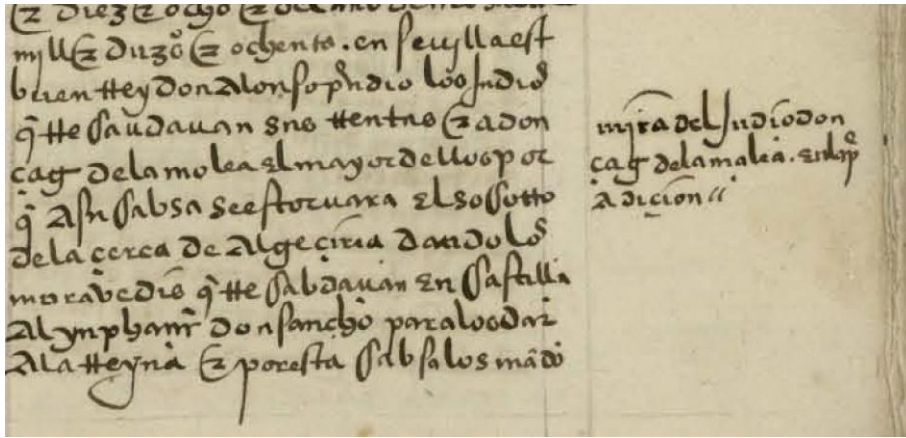 mill & duzº & ochenta . en seuylla est
buen Rey don alonso pndio los Judiº
q̃ Recaudauan sus Rentas & a don
çag de la molea El mayor dellos por
q̃ a su cabsa se estoruara El socorro
de la cerca de algezira dandolos
morauedis q̃ Recabdauan En castilla
al ynphante don sancho para los dar
a la Reyna & por esta cabsa los mãdo
mira del Judio don
çag de la malea . en la
adicion //